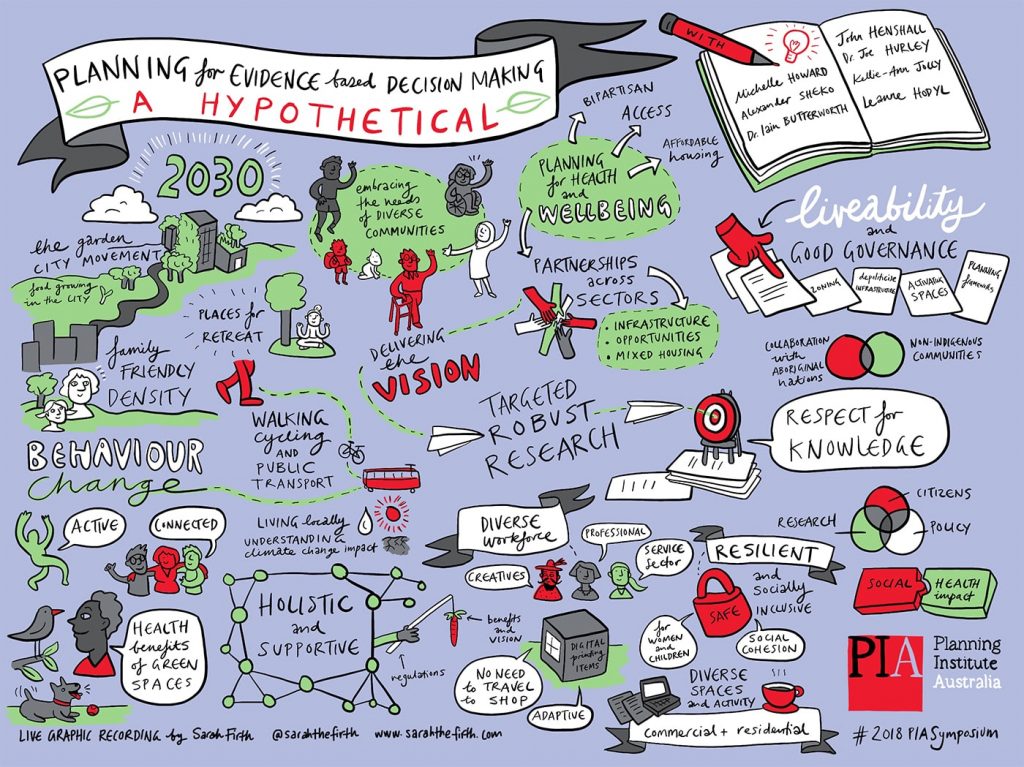 PLANNING for EVIDENCE based DECISION MAKING
A HYPOTHETICAL
WITH
Michelle HOWARD
Alexander SHEKO
Dr. Iain BUTTERWORTH
John HENSHALL
Dr. Joe HURLEY
Kellie-Ann JOLLY
Leanne HODYL
2030
the garden
CITY MOVEMENT
food growing
in the CITY
embracing
the needs
of DIVERSE
COMMUNITIES
PLANNING
for HEALTH
and
WELLBEING
BIPARTISAN
ACCESS
AFFORDABLE
housing
liveability
and
GOOD GOVERNANCE
ZONING
depoliticise
INFRASTRUCTURE
ACTIVATING
SPACES
PLANNING
frameworks
PLACES for
RETREAT
PARTNERSHIPS
across
SECTORS
• INFRASTRUCTURE
• OPPORTUNITIES
• MIXED HOUSING
COLLABORATION
with
ABORIGINAL
nations
NON-INDIGENOUS
COMMUNITIES
family
FRIENDLY
DENSITY
DELIVERING
the
VISION
TARGETED
ROBUST
RESEARCH
RESPECT for
KNOWLEDGE
WALKING
cycling
AND
PUBLIC
TRANSPORT
BEHAVIOUR
change
ACTIVE
CONNECTED
LIVING locally
UNDERSTANDING
climate change impact
DIVERSE
workforce
CREATIVES
PROFESSIONAL
SERVICE
sector
RESEARCH
CITIZENS
POLICY
RESILIENT
and
socially
INCLUSIVE
SAFE
for
WOMEN
and
CHILDREN
SOCIAL
COHESION
SOCIAL
HEALTH
impact
HEALTH
benefits
of GREEN
SPACES
HOLISTIC
and
SUPPORTIVE
benefits
and
VISION
regulations
DIGITAL
printing
ITEMS
NO NEED
to TRAVEL
to SHOP
ADAPTIVE
DIVERSE
SPACES
and ACTIVITY
commercial + residential
PIA
Planning
Institute
Australia
LIVE GRAPHIC RECORDING by Sarah Firth @sarahthefirth www.sarahthefirth.com
#2018PIASymposium